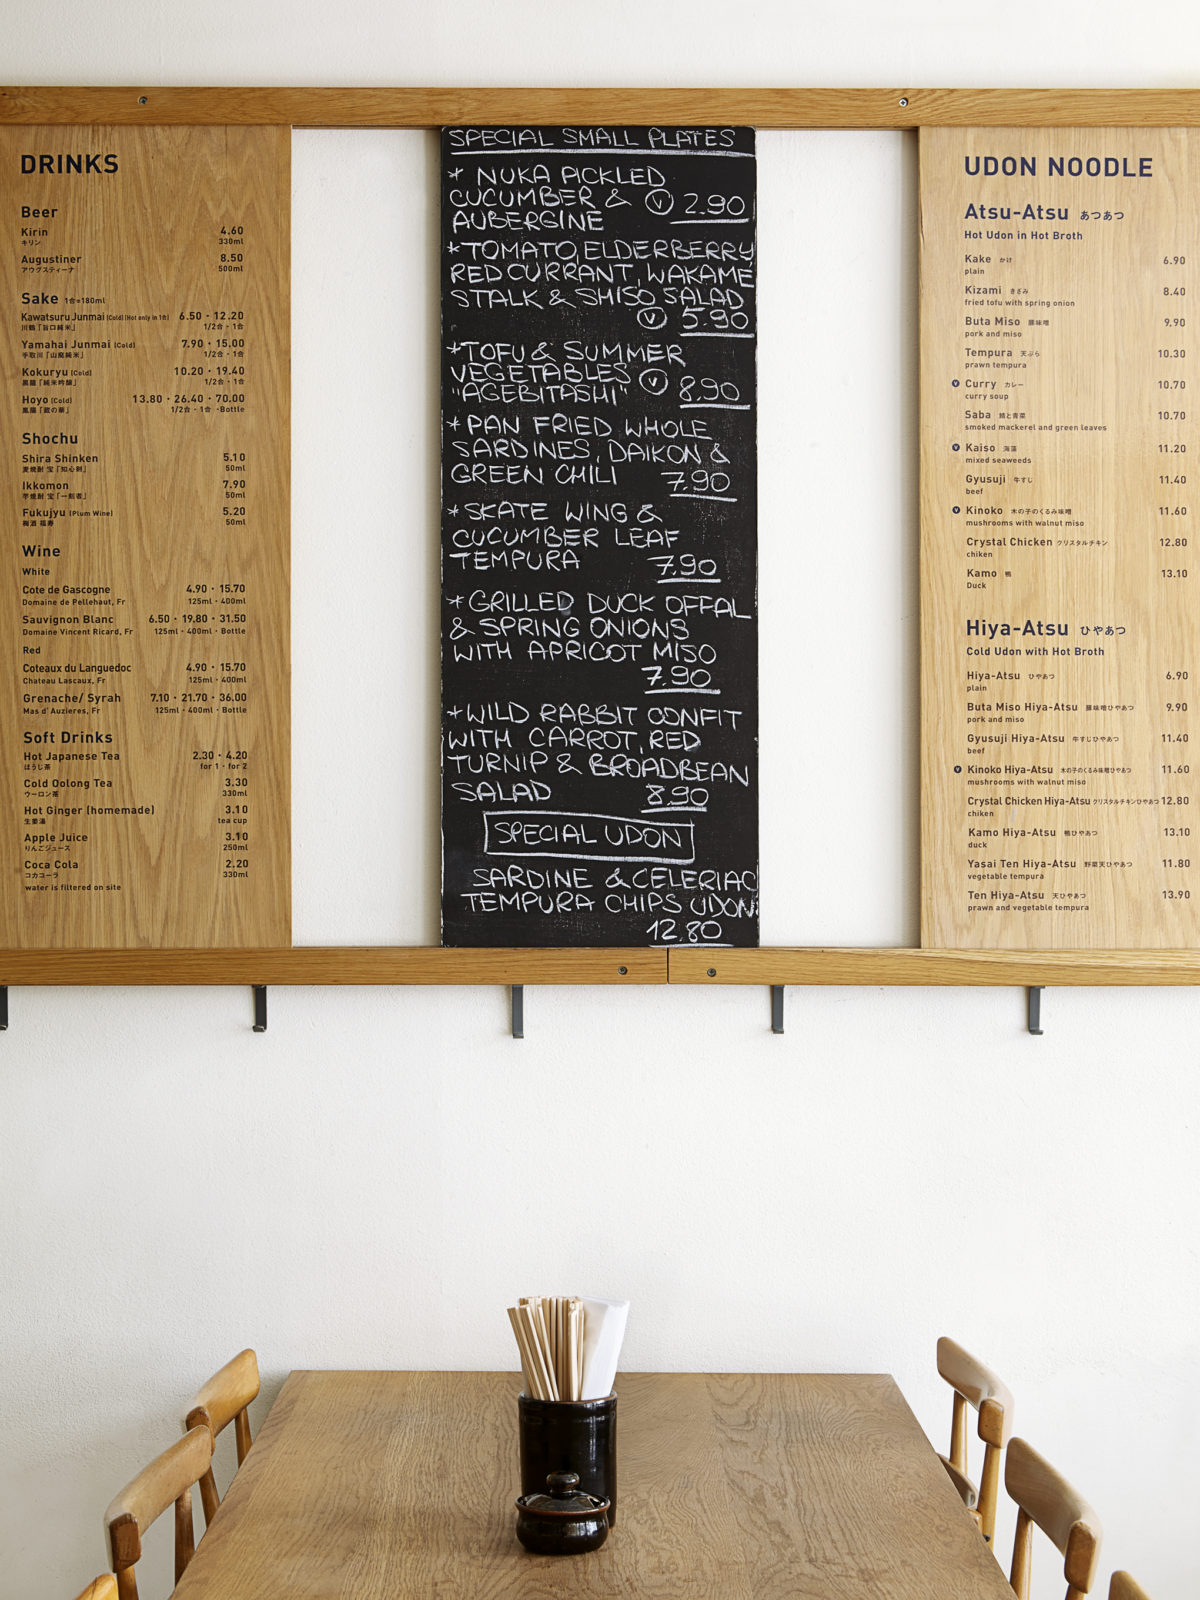 DRINKS
Beer
Kirin 4.60
キリン 330ml
Augustiner 8.50
アウグスティーナ 500ml
Sake 1合=180ml
Kawatsuru Junmai (Cold) (Hot only in 1合) 6.50・12.20
川鶴「旨口純米」 1/2合・1合
Yamahai Junmai (Cold) 7.90・15.00
手取川「山廃純米」 1/2合・1合
Kokuryu (Cold) 10.20・19.40
黒龍「純米吟醸」 1/2合・1合
Hoyo (Cold) 13.80・26.40・70.00
鳳陽「蔵の華」 1/2合・1合・Bottle
Shochu
Shira Shinken 5.10
麦焼酎 宝「知心剣」 50ml
Ikkomon 7.90
芋焼酎 宝「一刻者」 50ml
Fukujyu (Plum Wine) 5.20
梅酒 福寿 50ml
Wine
White
Cote de Gascogne 4.90・15.70
Domaine de Pellehaut, Fr 125ml・400ml
Sauvignon Blanc 6.50・19.80・31.50
Domaine Vincent Ricard, Fr 125ml・400ml・Bottle
Red
Coteaux du Languedoc 4.90・15.70
Chateau Lascaux, Fr 125ml・400ml
Grenache/ Syrah 7.10・21.70・36.00
Mas d' Auzieres, Fr 125ml・400ml・Bottle
Soft Drinks
Hot Japanese Tea 2.30・4.20
ほうじ茶 for 1・for 2
Cold Oolong Tea 3.30
ウーロン茶 330ml
Hot Ginger (homemade) 3.10
生姜湯 tea cup
Apple Juice 3.10
りんごジュース 250ml
Coca Cola 2.20
コカコーラ 330ml
water is filtered on site
SPECIAL SMALL PLATES
* NUKA PICKLED
CUCUMBER & V 2.90
AUBERGINE
* TOMATO, ELDERBERRY,
REDCURRANT, WAKAME
STALK & SHISO SALAD
V 5.90
* TOFU & SUMMER
VEGETABLES V 8.90
"AGEBITASHI"
* PAN FRIED WHOLE
SARDINES, DAIKON &
GREEN CHILI 7.90
* SKATE WING &
CUCUMBER LEAF
TEMPURA 7.90
* GRILLED DUCK OFFAL
& SPRING ONIONS
WITH APRICOT MISO
7.90
* WILD RABBIT CONFIT
WITH CARROT, RED
TURNIP & BROADBEAN
SALAD 8.90
SPECIAL UDON
SARDINE & CELERIAC
TEMPURA CHIPS UDON
12.80
UDON NOODLE
Atsu-Atsu あつあつ
Hot Udon in Hot Broth
Kake かけ 6.90
plain
Kizami きざみ 8.40
fried tofu with spring onion
Buta Miso 豚味噌 9.90
pork and miso
Tempura 天ぷら 10.30
prawn tempura
V Curry カレー 10.70
curry soup
Saba 鯖と青菜 10.70
smoked mackerel and green leaves
V Kaiso 海藻 11.20
mixed seaweeds
Gyusuji 牛すじ 11.40
beef
V Kinoko 木の子のくるみ味噌 11.60
mushrooms with walnut miso
Crystal Chicken クリスタルチキン 12.80
chiken
Kamo 鴨 13.10
Duck
Hiya-Atsu ひやあつ
Cold Udon with Hot Broth
Hiya-Atsu ひやあつ 6.90
plain
Buta Miso Hiya-Atsu 豚味噌ひやあつ 9.90
pork and miso
Gyusuji Hiya-Atsu 牛すじひやあつ 11.40
beef
V Kinoko Hiya-Atsu 木の子のくるみ味噌ひやあつ 11.60
mushrooms with walnut miso
Crystal Chicken Hiya-Atsu クリスタルチキンひやあつ 12.80
chiken
Kamo Hiya-Atsu 鴨ひやあつ 13.10
duck
Yasai Ten Hiya-Atsu 野菜天ひやあつ 11.80
vegetable tempura
Ten Hiya-Atsu 天ひやあつ 13.90
prawn and vegetable tempura